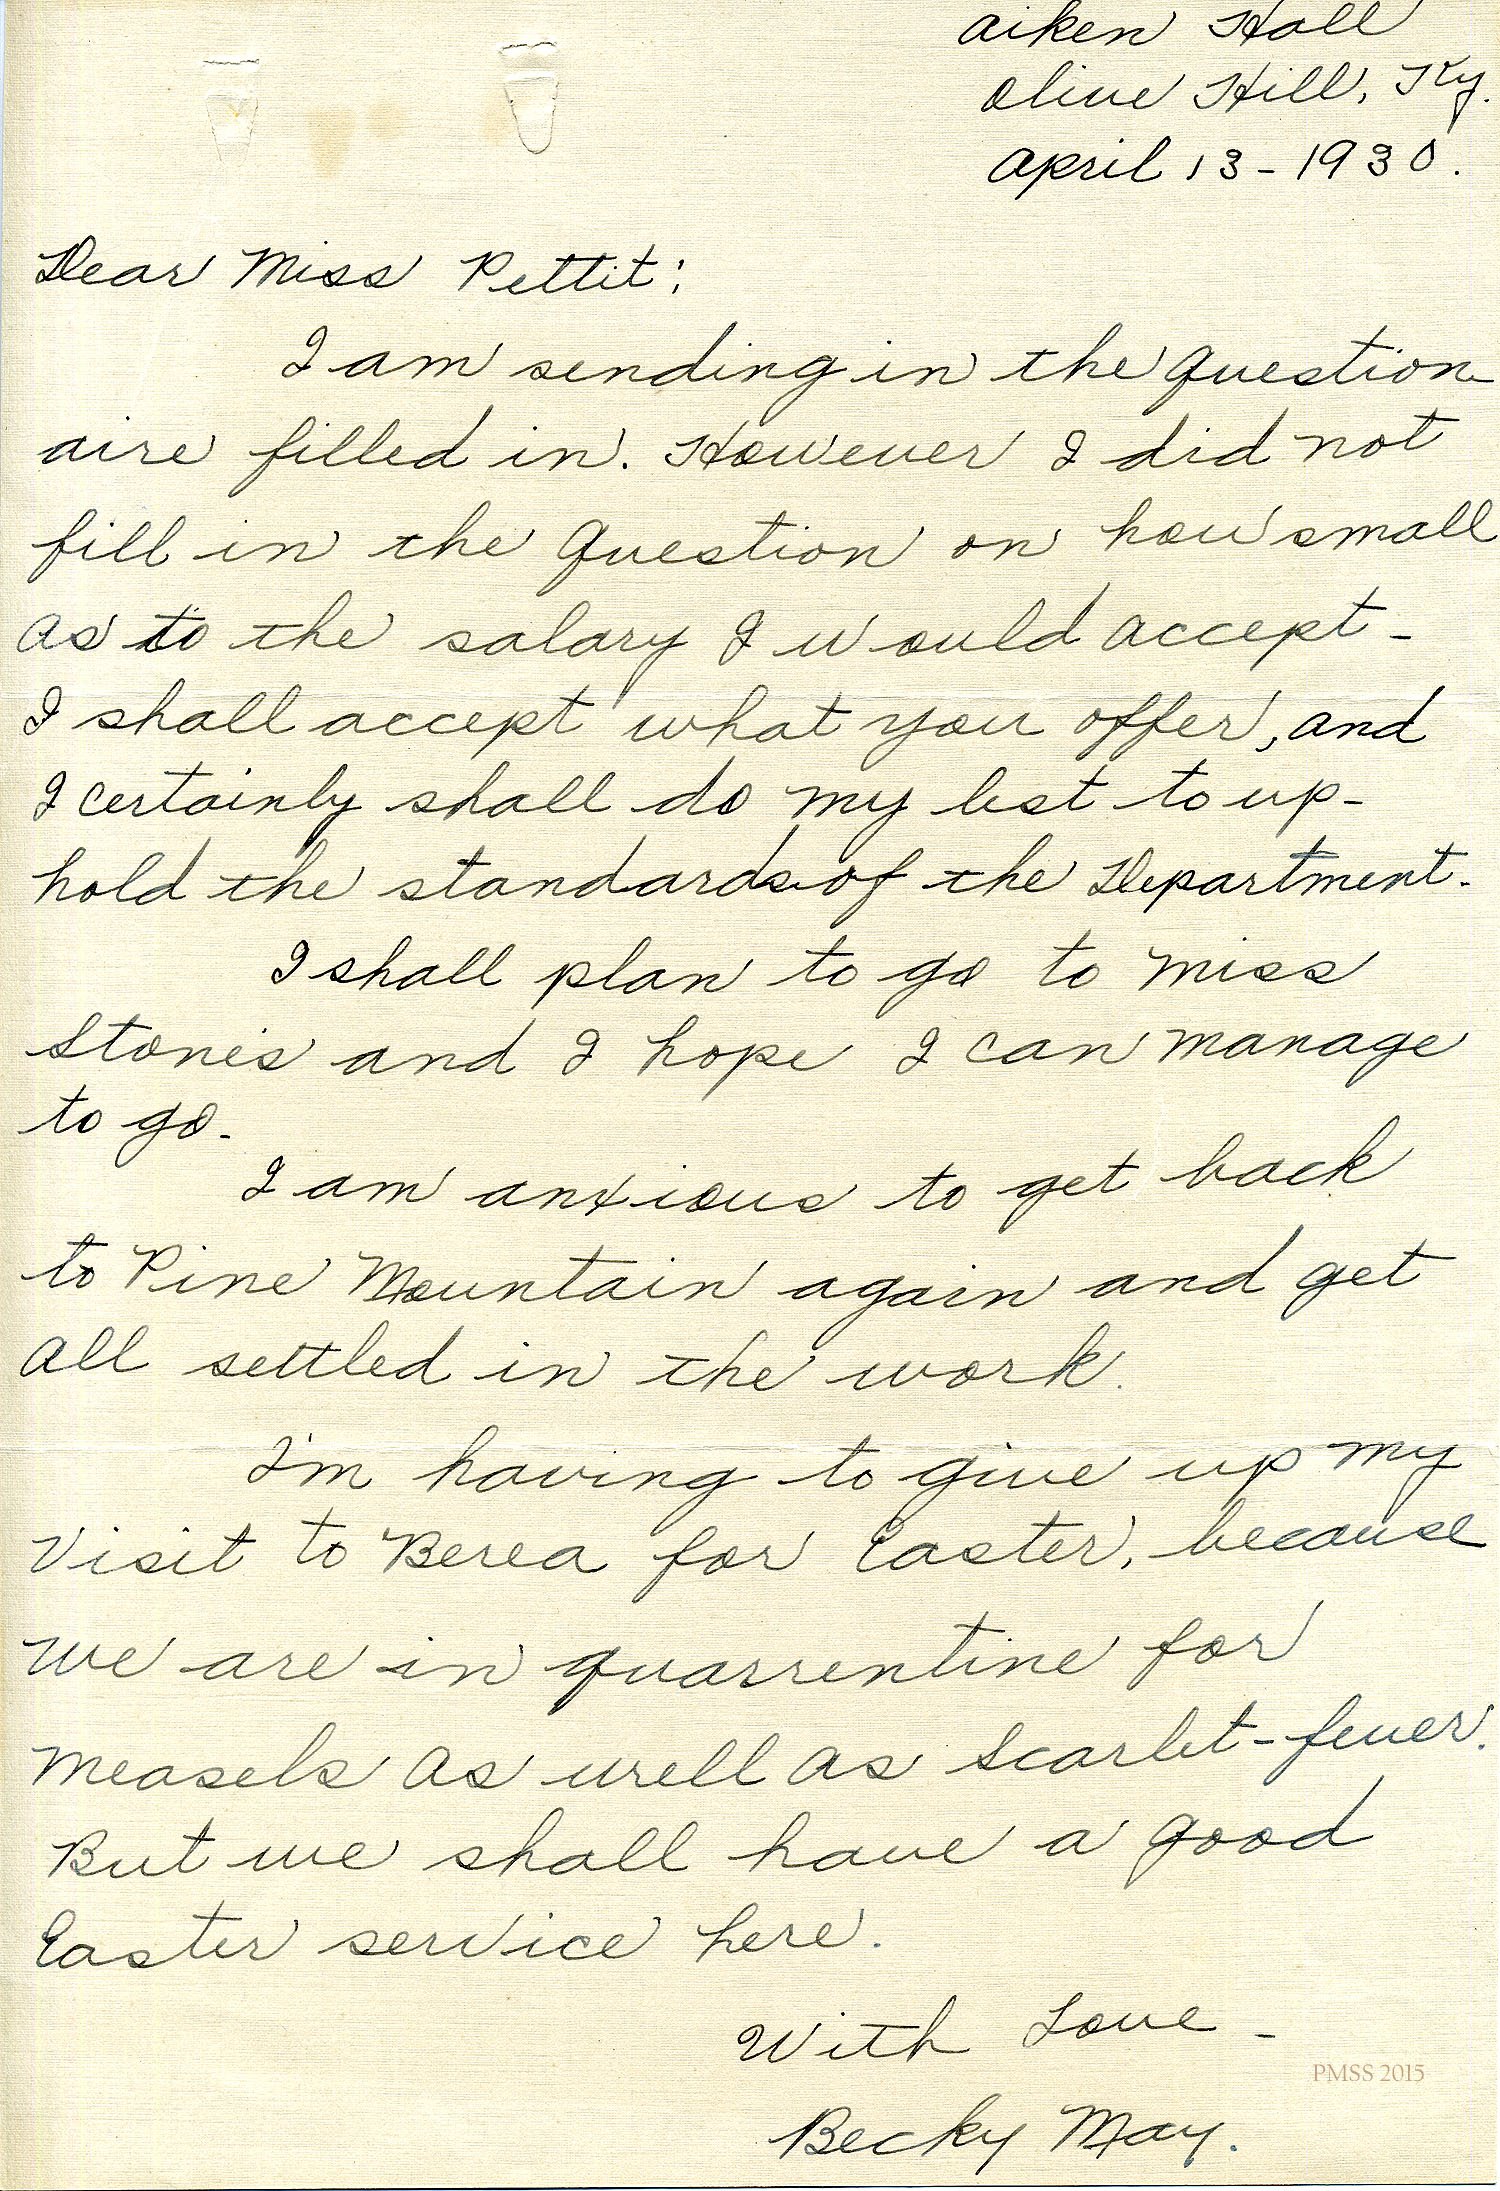 Aiken Hall
Olive Hill, Ky.
April 13 - 1930.
Dear Miss Pettit:
I am sending in the question
aire filled in. However I did not
fill in the question on how small
as to the salary I would accept -
I shall accept what you offer, and
I certainly shall do my best to up-
hold the standards of the Department.
I shall plan to go to Miss
Stone's and I hope I can manage
to go.
I am anxious to get back
to Pine Mountain again and get
all settled in the work.
I'm having to give up my
visit to Berea for Easter, because
we are in quarrentine for
measels as well as scarlet-fever.
But we shall have a good
Easter service here.
With Love -
PMSS 2015
Becky May.